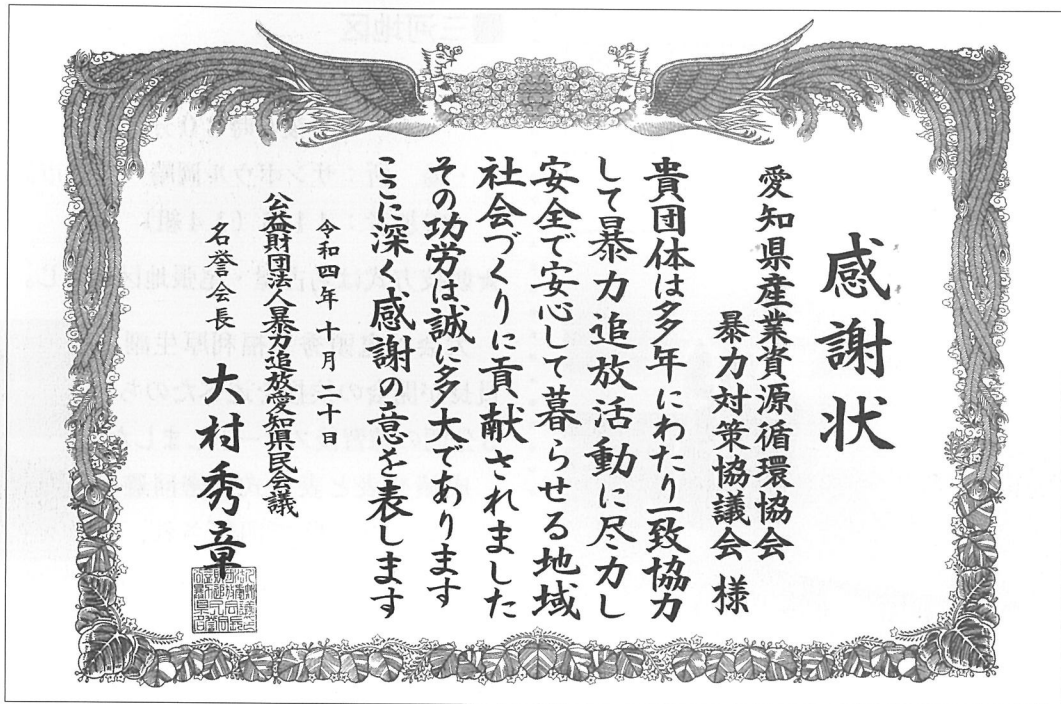 感謝状
愛知県産業資源循環協会
暴力対策協議会 様
貴団体は多年にわたり一致協力
して暴力追放活動に尽力し
安全で安心して暮らせる地域
社会づくりに貢献されました
その功労は誠に多大であります
ここに深く感謝の意を表します
令和四年十月二十日
公益財団法人暴力追放愛知県民会議
名誉会長 大村秀章